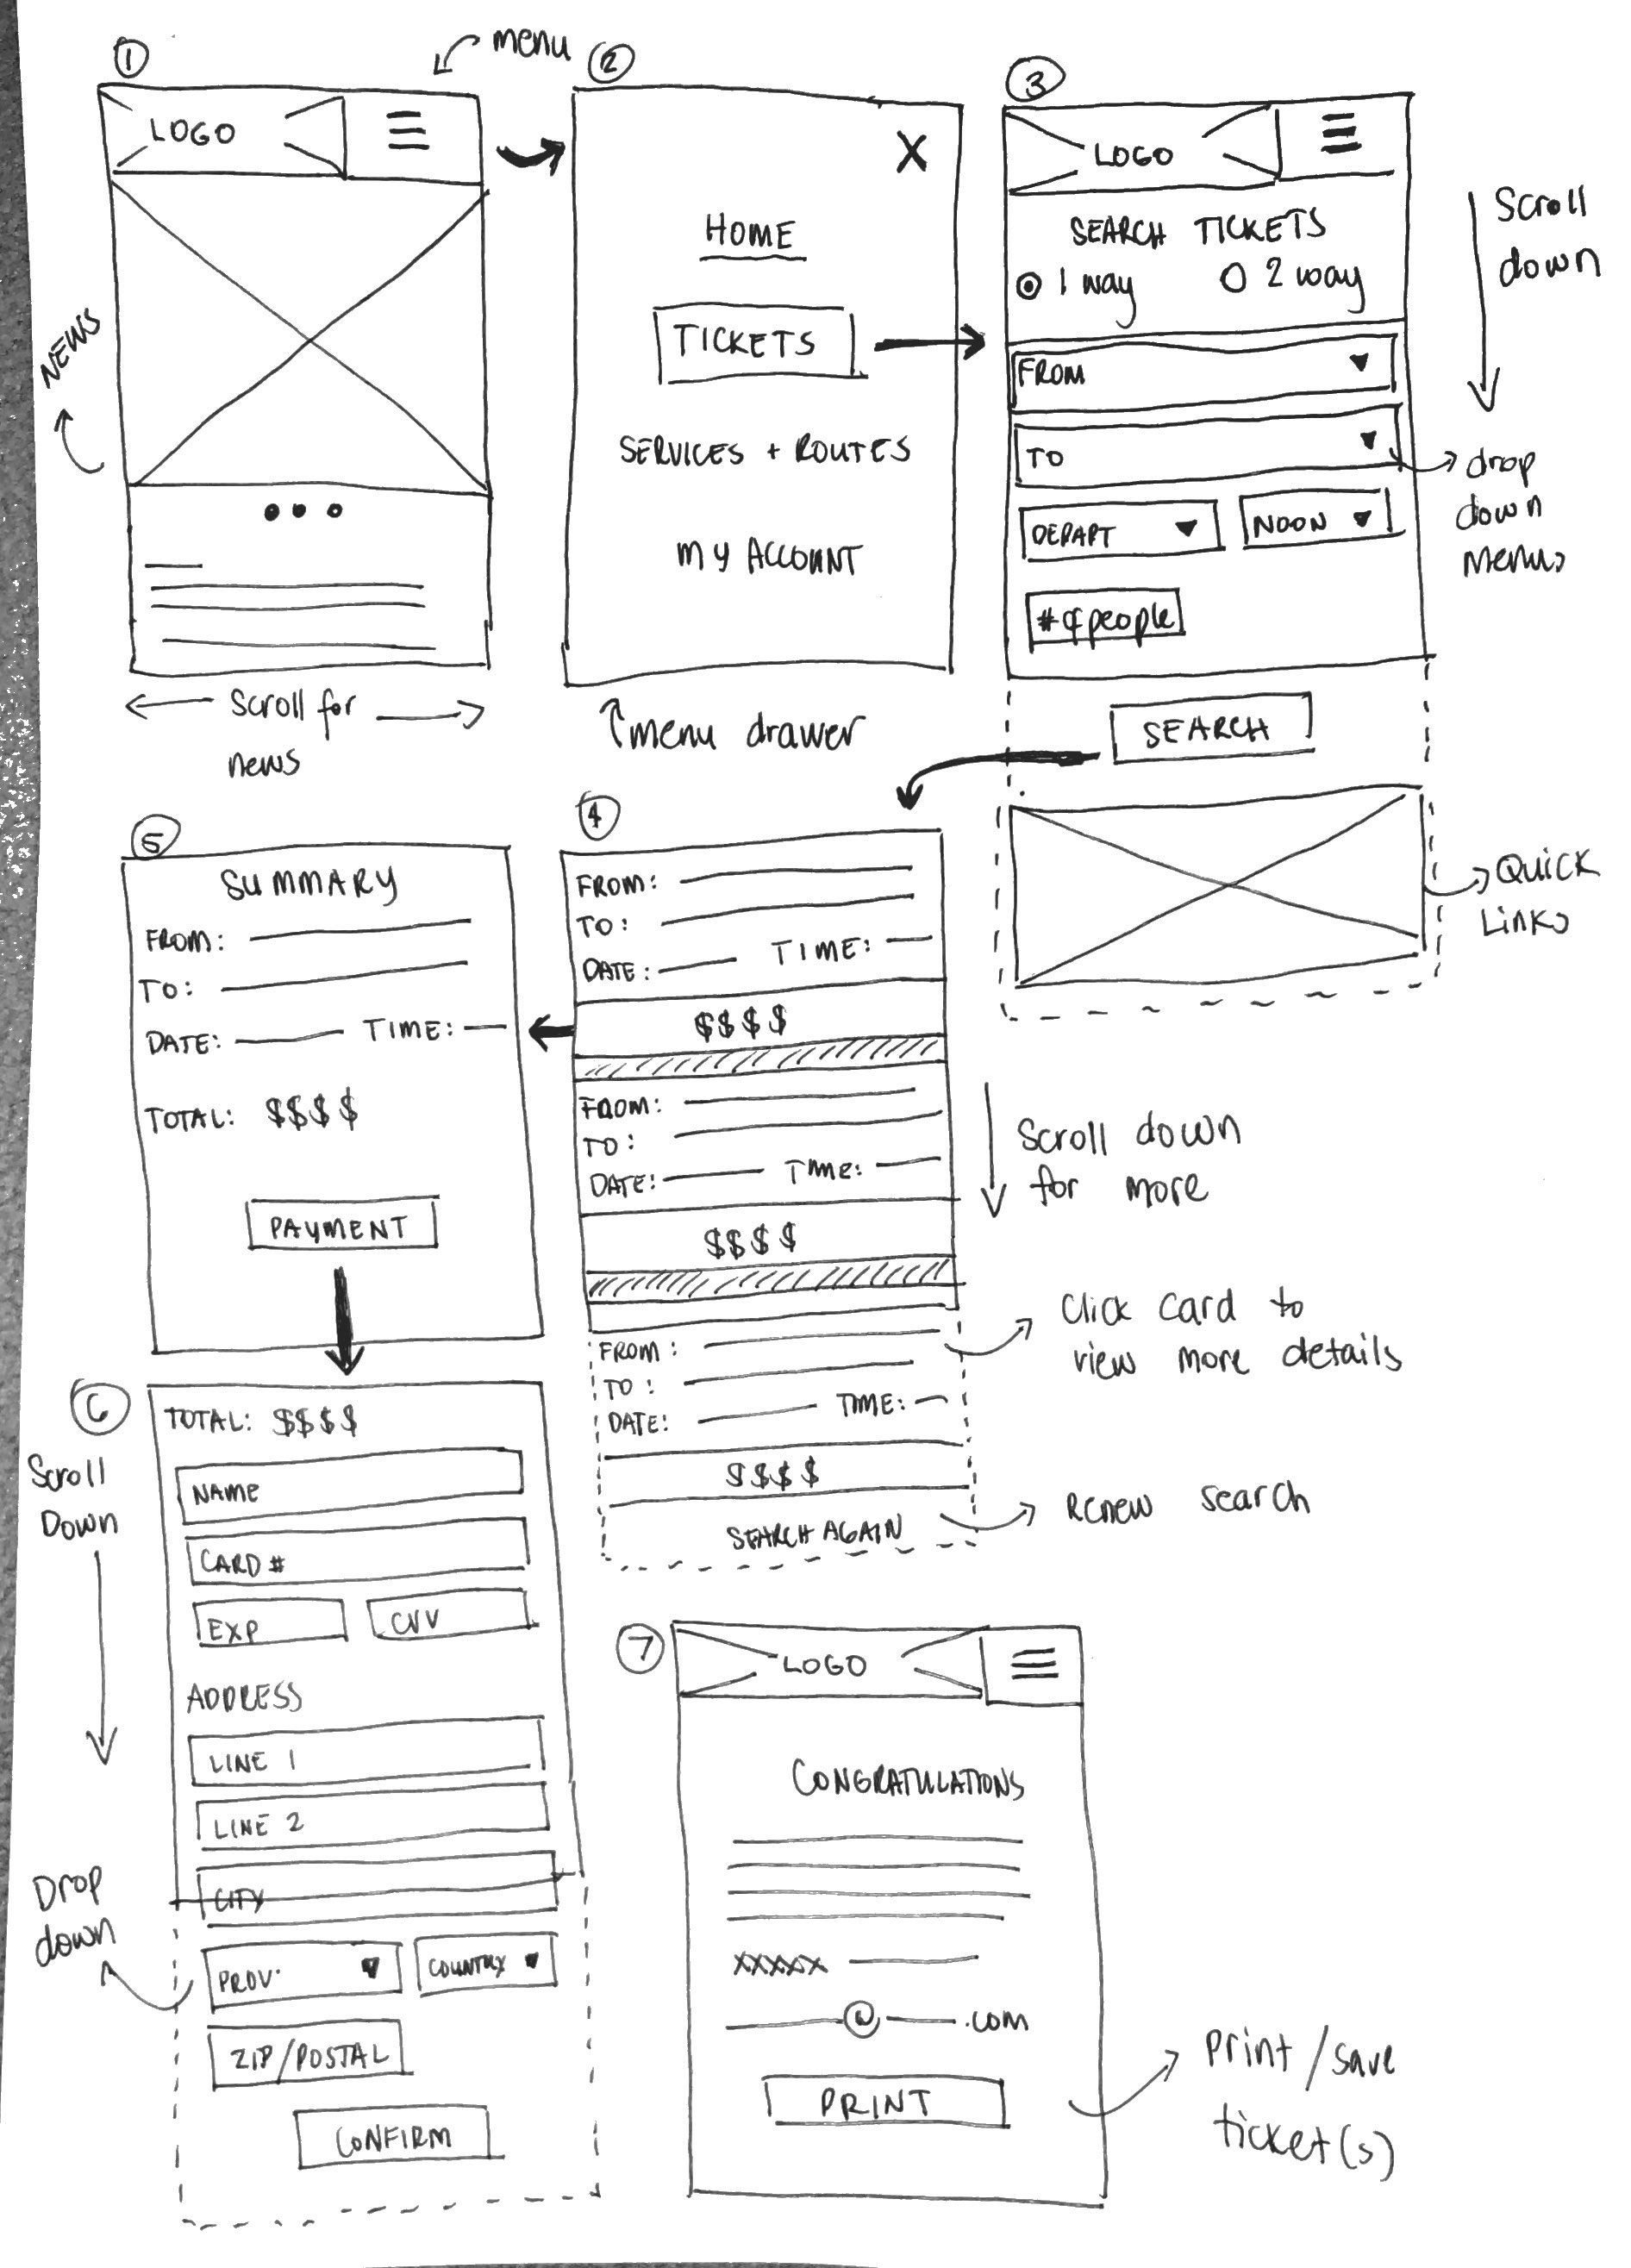 1
menu
LOGO
NEWS
Scroll for
news
2
X
HOME
TICKETS
SERVICES + ROUTES
MY ACCOUNT
menu drawer
3
LOGO
SEARCH TICKETS
1 way 2 way
FROM
TO
DEPART NOON
# of people
SEARCH
Scroll
down
drop
down
menus
Quick
Links
4
FROM:
TO:
DATE: TIME:
$$$$
FROM:
TO:
DATE: TIME:
$$$$
FROM:
TO:
DATE: TIME:
$$$$
SEARCH AGAIN
Scroll down
for more
Click card to
view more details
Renew search
5
SUMMARY
FROM:
TO:
DATE: TIME:
TOTAL: $$$$
PAYMENT
6
Scroll
Down
TOTAL: $$$$
NAME
CARD #
EXP CVV
ADDRESS
LINE 1
LINE 2
CITY
Drop
down
PROV. COUNTRY
ZIP/POSTAL
CONFIRM
7
LOGO
CONGRATULATIONS
XXXXX
@ .com
PRINT
print/save
ticket(s)